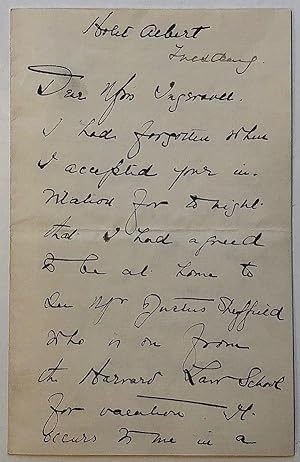 Hotel Albert
Tuesday.
Dear Mrs
I had forgotten when
I accepted your in-
vitation for to night
that I had agreed
to be at home to
see Mr Sheffield
who is on from
the Harvard Law School
for vacation. It
occurs to me in a